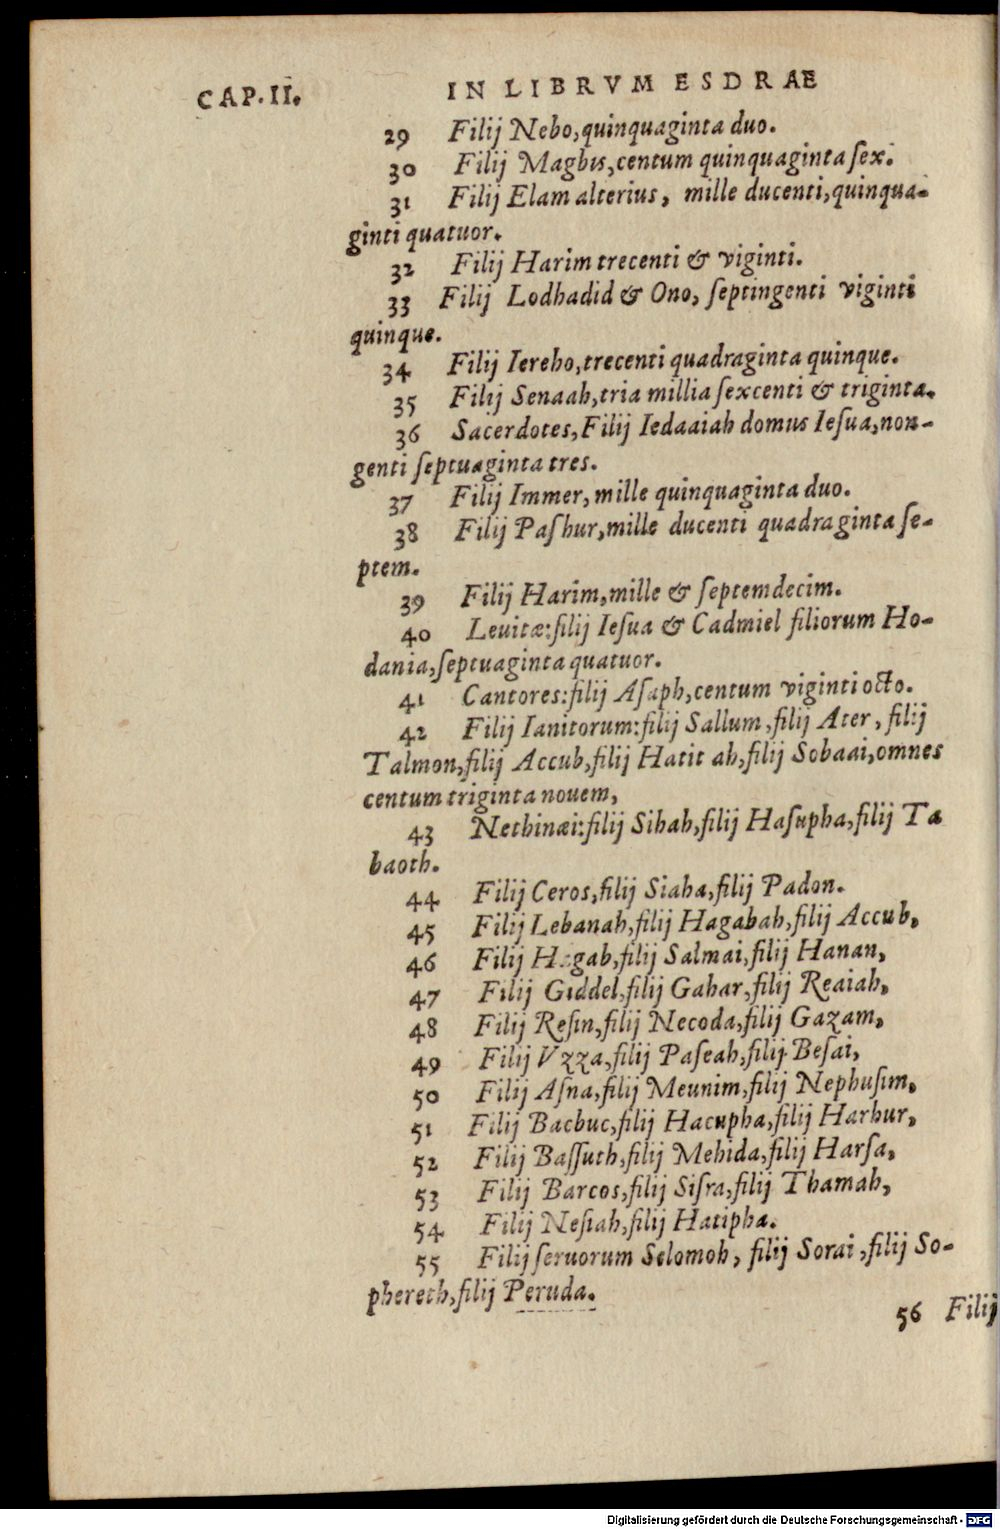 CAP. II.
IN LIBRVM ESDRAE
29 Filij Nebo, quinquaginta duo.
30 Filij Magbis, centum quinquaginta ſex.
31 Filij Elam alterius, mille ducenti, quinqua-
ginti quatuor.
32 Filij Harim trecenti & viginti.
33 Filij Lodhadid & Ono, ſeptingenti viginti
quinque.
34 Filij Iereho, trecenti quadraginta quinque.
35 Filij Senaah, tria millia ſexcenti & triginta.
36 Sacerdotes, Filij Iedaaiah domus Ieſua, non-
genti ſeptuaginta tres.
37 Filij Immer, mille quinquaginta duo.
38 Filij Paſhur, mille ducenti quadraginta ſe-
ptem.
39 Filij Harim, mille & ſeptemdecim.
40 Leuitæ: filij Ieſua & Cadmiel filiorum Ho-
dania, ſeptuaginta quatuor.
41 Cantores: filij Aſaph, centum viginti octo.
42 Filij Ianitorum: filij Sallum, filij Ater, filij
Talmon, filij Accub, filij Hatit ah, filij Sobaai, omnes
centum triginta nouem,
43 Nethinæi: filij Sihah, filij Haſupha, filij Ta
baoth.
44 Filij Ceros, filij Siaha, filij Padon.
45 Filij Lebanah, filij Hagabah, filij Accub,
46 Filij Hagab, filij Salmai, filij Hanan,
47 Filij Giddel, filij Gahar, filij Reaiah,
48 Filij Reſin, filij Necoda, filij Gazam,
49 Filij Vzza, filij Paſeah, filij Beſai,
50 Filij Aſna, filij Meunim, filij Nephuſim,
51 Filij Bacbuc, filij Hacupha, filij Harhur,
52 Filij Baſſuth, filij Mehida, filij Harſa,
53 Filij Barcos, filij Siſra, filij Thamah,
54 Filij Neſiah, filij Hatipha.
55 Filij ſeruorum Selomoh, filij Sorai, filij So-
phereth, filij Peruda.
56 Filij
Digitalisierung gefördert durch die Deutsche Forschungsgemeinschaft - DFG